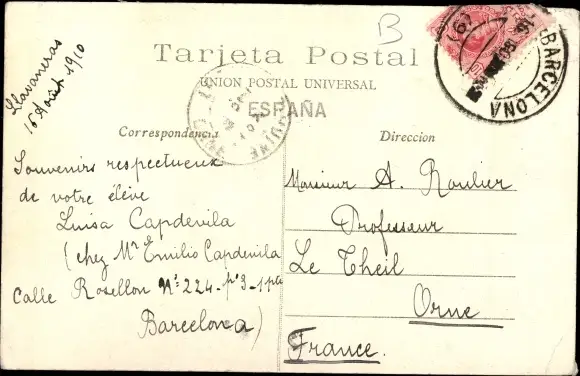 Llavaneras
16 Août 1910
B
Tarjeta Postal
UNION POSTAL UNIVERSAL
ESPAÑA
BARCELONA
Correspondencia
Souvenirs respectueux
de votre élève
Luisa Capdevila
(chez Mr Emilio Capdevila
Calle Rosellon Nº 224- pº 3-1 pta
Barcelona)
Direccion
Monsieur A. Roulier
Professeur
Le Theil
Orne
France.